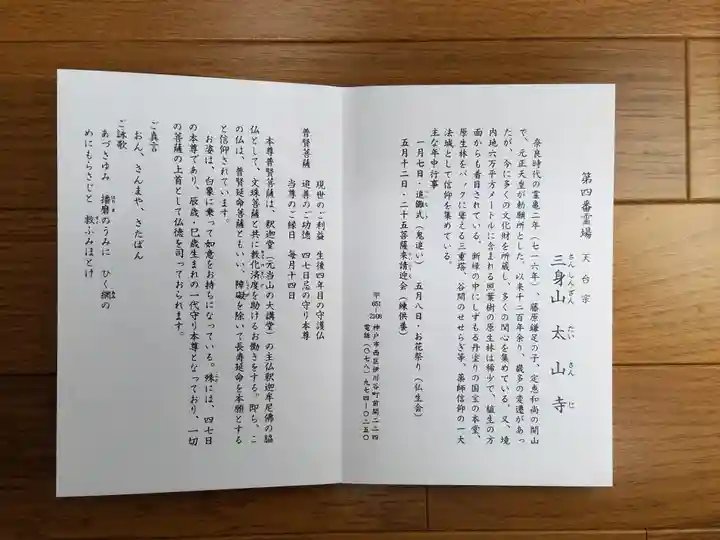 第四番霊場　天台宗
三身山　太山寺
さんしんざん　たいさんじ
奈良時代の霊亀二年（七一六年）、藤原鎌足の子、定恵和尚の開山
で、元正天皇が勅願所とした。以来千二百年余り、幾多の変遷があっ
たが、今に多くの文化財を所蔵し、多くの関心を集めている。又、境
内地六万平方メートルに含まれる照葉樹の原生林は稀少で、植生の方
面からも着目されている。新緑の中にしずもる丹塗りの国宝の本堂、
原生林をバックに聳える三重塔、谷間のせせらぎ等、薬師信仰の一大
法城として信仰を集めている。
主な年中行事
一月七日・追儺式（鬼追い）　五月八日・お花祭り（仏生会）
五月十二日・二十五菩薩来請迎会（練供養）
〒651-2108　神戸市西区伊川谷町前開二二四
電話（〇七八）九七四―〇二五〇
現世のご利益　生後四年目の守護仏
普賢菩薩　追善のご功徳　四七日忌の守り本尊
当尊のご縁日　毎月十四日
本尊普賢菩薩は、釈迦堂（元当山の大講堂）の主仏釈迦牟尼佛の脇
仏として、文珠菩薩と共に教化済度を助けるお働きをする。即ち、こ
の仏は、普賢延命菩薩ともいい、障礙を除いて長寿延命を本願とする
と信仰されています。
お姿は、白象に乗って如意をお持ちになっている。殊には、四七日
の本尊であり、辰歳・巳歳生まれの一代守り本尊となっており、一切
の菩薩の上首として仏徳を司っておられます。
ご真言
おん、さんまや、さたばん
ご詠歌
あづさゆみ　播磨のうみに　ひく網の
めにもらさじと　救ふみほとけ